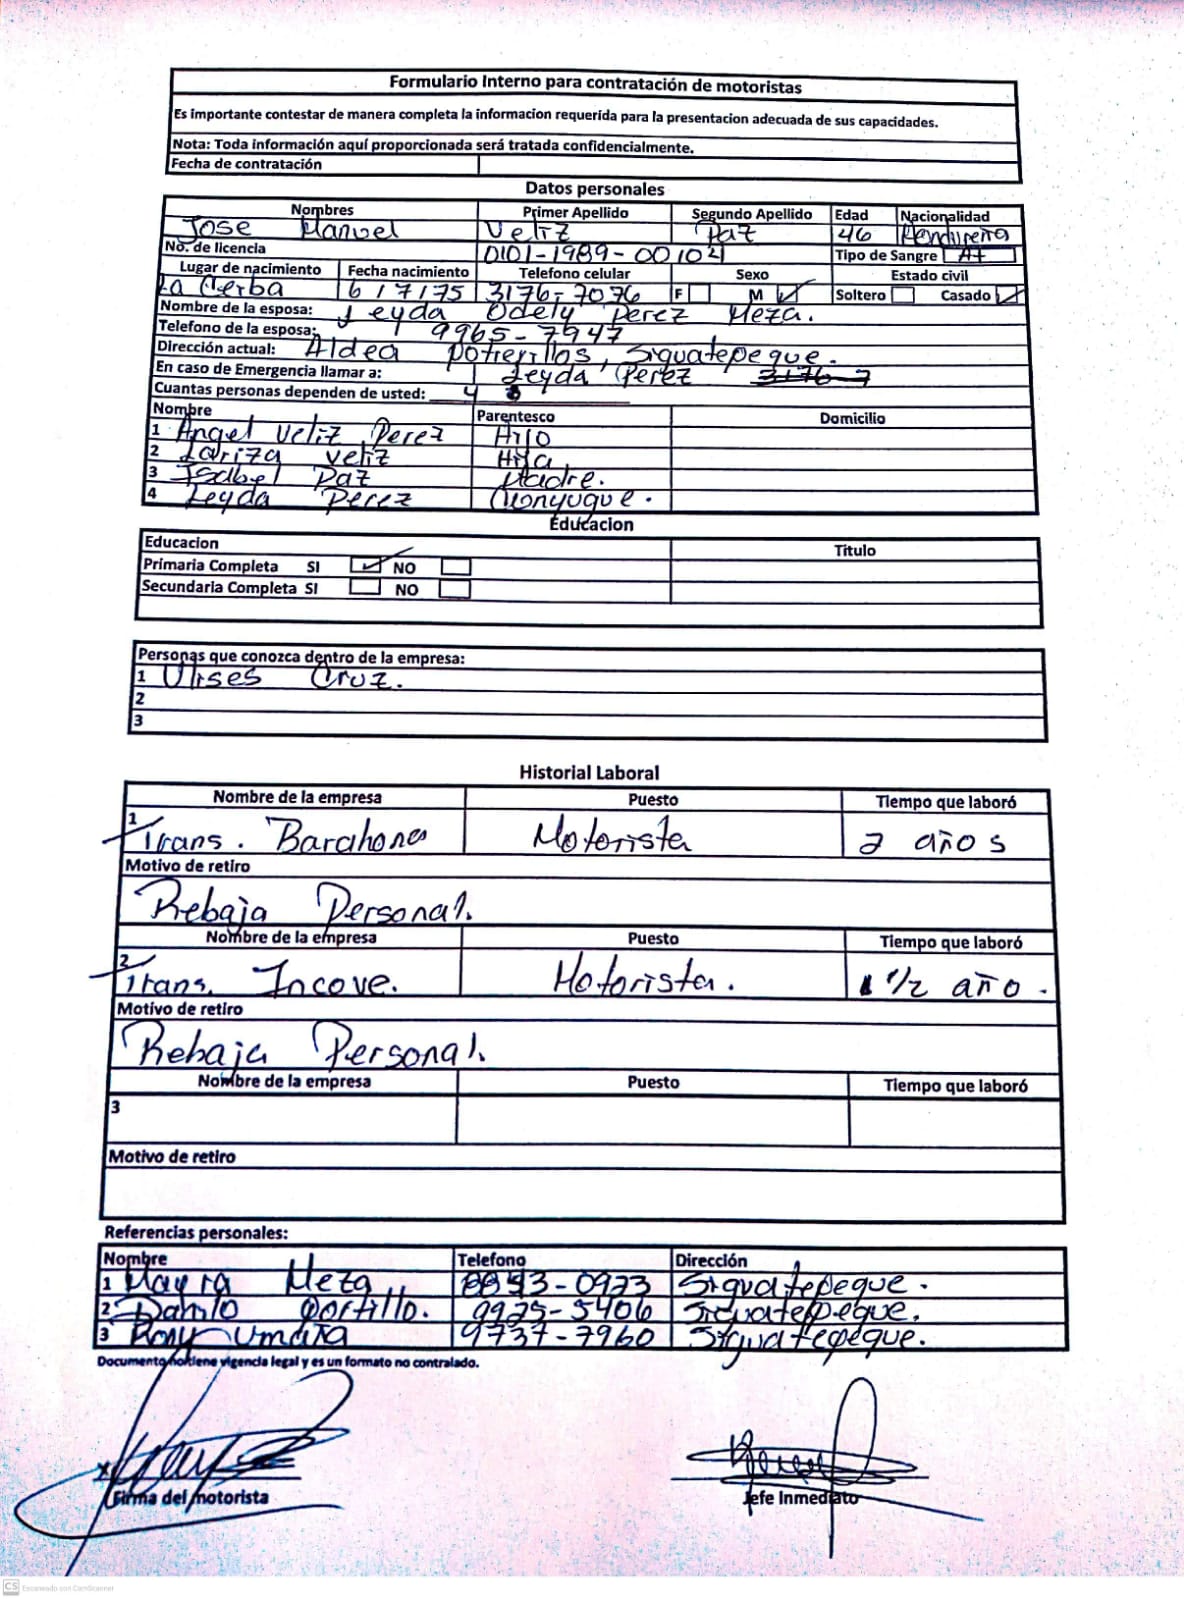 Formulario Interno para contratación de motoristas
Es importante contestar de manera completa la informacion requerida para la presentacion adecuada de sus capacidades.
Nota: Toda información aquí proporcionada será tratada confidencialmente.
Fecha de contratación
Datos personales
Nombres Primer Apellido Segundo Apellido Edad Nacionalidad
Jose Manuel Veliz Paz 46 Hondureña
No. de licencia 0101-1989-00102 Tipo de Sangre A+
Lugar de nacimiento Fecha nacimiento Telefono celular Sexo Estado civil
La Ceiba 6/7/75 3176-7076 F M Soltero Casado
Nombre de la esposa: Leyda Odely Perez Meza.
Telefono de la esposa: 9965-7947
Dirección actual: Aldea Potrerillos, Siguatepeque.
En caso de Emergencia llamar a: Leyda Perez 3176-7
Cuantas personas dependen de usted: 4
Nombre Parentesco Domicilio
1 Angel Veliz Perez Hijo
2 Lariza Veliz Hija
3 Isabel Paz Madre.
4 Leyda Perez Conyugue.
Educacion
Educacion Titulo
Primaria Completa SI NO
Secundaria Completa SI NO
Personas que conozca dentro de la empresa:
1 Ulises Cruz.
2
3
Historial Laboral
Nombre de la empresa Puesto Tiempo que laboró
1 Trans. Barahona Motorista 2 años
Motivo de retiro
Rebaja Personal.
Nombre de la empresa Puesto Tiempo que laboró
2 Trans. Incove. Motorista. 1/2 año.
Motivo de retiro
Rebaja Personal.
Nombre de la empresa Puesto Tiempo que laboró
3
Motivo de retiro
Referencias personales:
Nombre Telefono Dirección
1 Mayra Meza 8893-0973 Siguatepeque.
2 Danilo Portillo. 9925-5406 Siguatepeque.
3 Rony Umaña 9737-7960 Siguatepeque.
Documento no tiene vigencia legal y es un formato no contralado.
Firma del motorista Jefe Inmediato
CS Escaneado con CamScanner